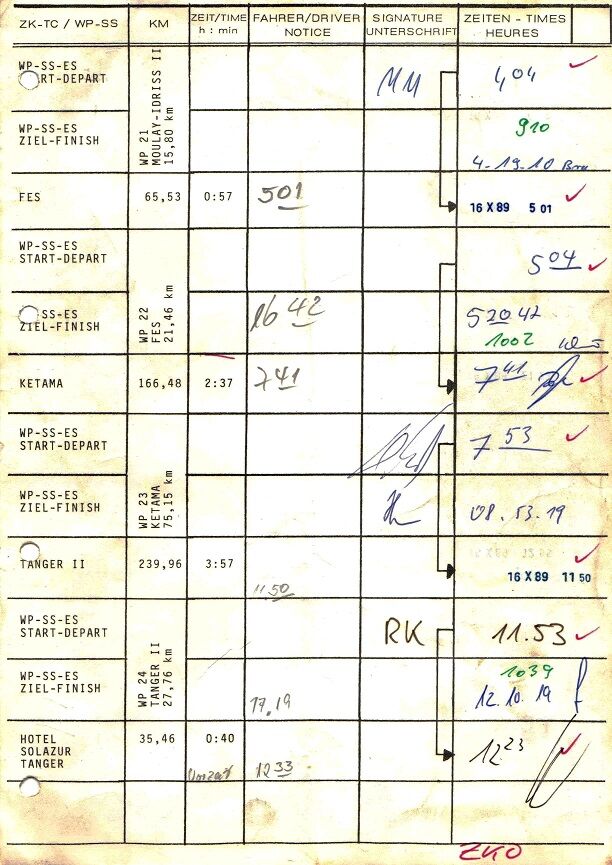 ZK-TC / WP-SS KM ZEIT/TIME h : min FAHRER/DRIVER NOTICE SIGNATURE UNTERSCHRIFT ZEITEN - TIMES HEURES
WP-SS-ES
RT-DEPART
WP 21
MOULAY-IDRISS II
15,80 km
MM
4 04
WP-SS-ES
ZIEL-FINISH
910
4-19-10
FES 65,53 0:57 501 16 X 89 5 01
WP-SS-ES
START-DEPART
5 04
WP 22
FES
21,46 km
SS-ES
ZIEL-FINISH
16 42
5 20 42
1002
KETAMA 166,48 2:37 7 41 7 41
WP-SS-ES
START-DEPART
7 53
WP 23
KETAMA
75,15 km
WP-SS-ES
ZIEL-FINISH
08.53.19
TANGER II 239,96 3:57 11 50 16 X 89 11 50
WP-SS-ES
START-DEPART
RK
11.53
WP 24
TANGER II
27,76 km
WP-SS-ES
ZIEL-FINISH
17.19
1039
12.10.19
HOTEL
SOLAZUR
TANGER
35,46 0:40
Vorzeit 12 33
12 23
ZKO